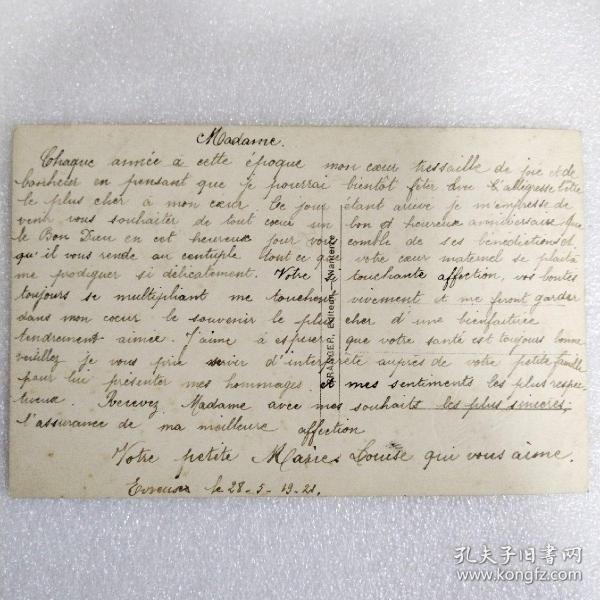 Madame.
Chaque année à cette époque mon cœur tressaille de joie et de
bonheur en pensant que je pourrai bientôt fêter avec l'allégresse
le plus cher à mon cœur. Ce jour étant arrivé je m'empresse de
venir vous souhaiter de tout cœur un bon et heureux anniversaire. Que
le Bon Dieu en cet heureux jour vous comble de ses bénédictions et
qu'il vous rende au centuple tout ce que votre cœur maternel se plait à
me prodiguer si délicatement. Votre si touchante affection, vos bontés
toujours se multipliant me touchent vivement et me feront garder
dans mon cœur le souvenir le plus cher d'une bienfaitrice
tendrement aimée. J'aime à espérer que votre santé est toujours bonne
veuillez je vous prie servir d'interprète auprès de votre petite famille
pour lui présenter mes hommages et mes sentiments les plus respec
tueux. Recevez Madame avec mes souhaits les plus sincères,
l'assurance de ma meilleure affection
Votre petite Marie Louise qui vous aime.
le 28-5-19-21.
GRANGER, Editeur, Nanterre
孔夫子旧书网
www.kongfz.com